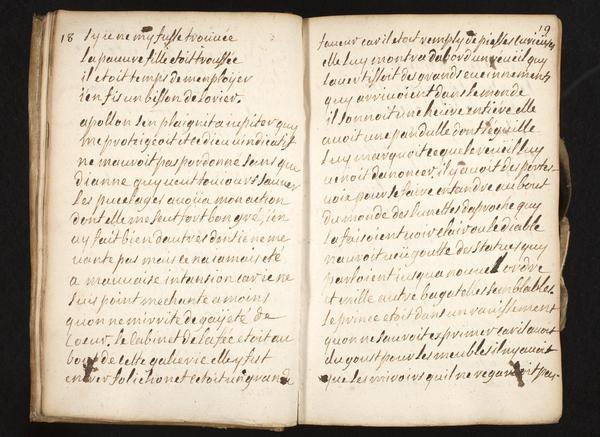 18
sy ie ne my fusse trouuée
la pauure fille étoit troussée
il étoit temps de menployer
ien fis un bisson de lorier.
apollon sen plaignit a iupiter quy
me protégeoit et ce dieu uindicatif
ne mauroit pas pardonné sans que
dianne quy ueut tousiours sauuer
les pucelages auoüa mon action
dont elle me seut fort bon gré, ien
ay fait bien dautres dont ie ne me
uante pas mais ce na iamais été
a mauuaise intansion car ie ne
suis point mechante a moins
quon ne mirrite de gaÿeté de
Coeur. le Cabinet de la fée étoit au
bout de cette galerie elle y fist
entrer folichonet cétoit un grande
19
faueur car il étoit remply de piesses curieuses
elle luy montra dabord un réueil quy
lauertissoit des grands éueinnements
quy arriuoient dans le monde
il sonnoit une heüre entiére elle
auoit une pandulle dont léguille
luy marquoit ce que le réueil luy
uenoit danoncer, il y auoit des portes
uoix pour se faire entandre au bout
du monde des lunettes daproche quy
la faisoient uoir clair ou le diable
nauroit ueü goutte des statues quy
parloient iusqua nouuel ordre
et mille autre bagatelles semblables
le prince étoit dans un rauissement
quon ne sauroit exprimer car il auoit
du goust pour les meubles il ny auoit
que les miroirs quil ne regardoit pas